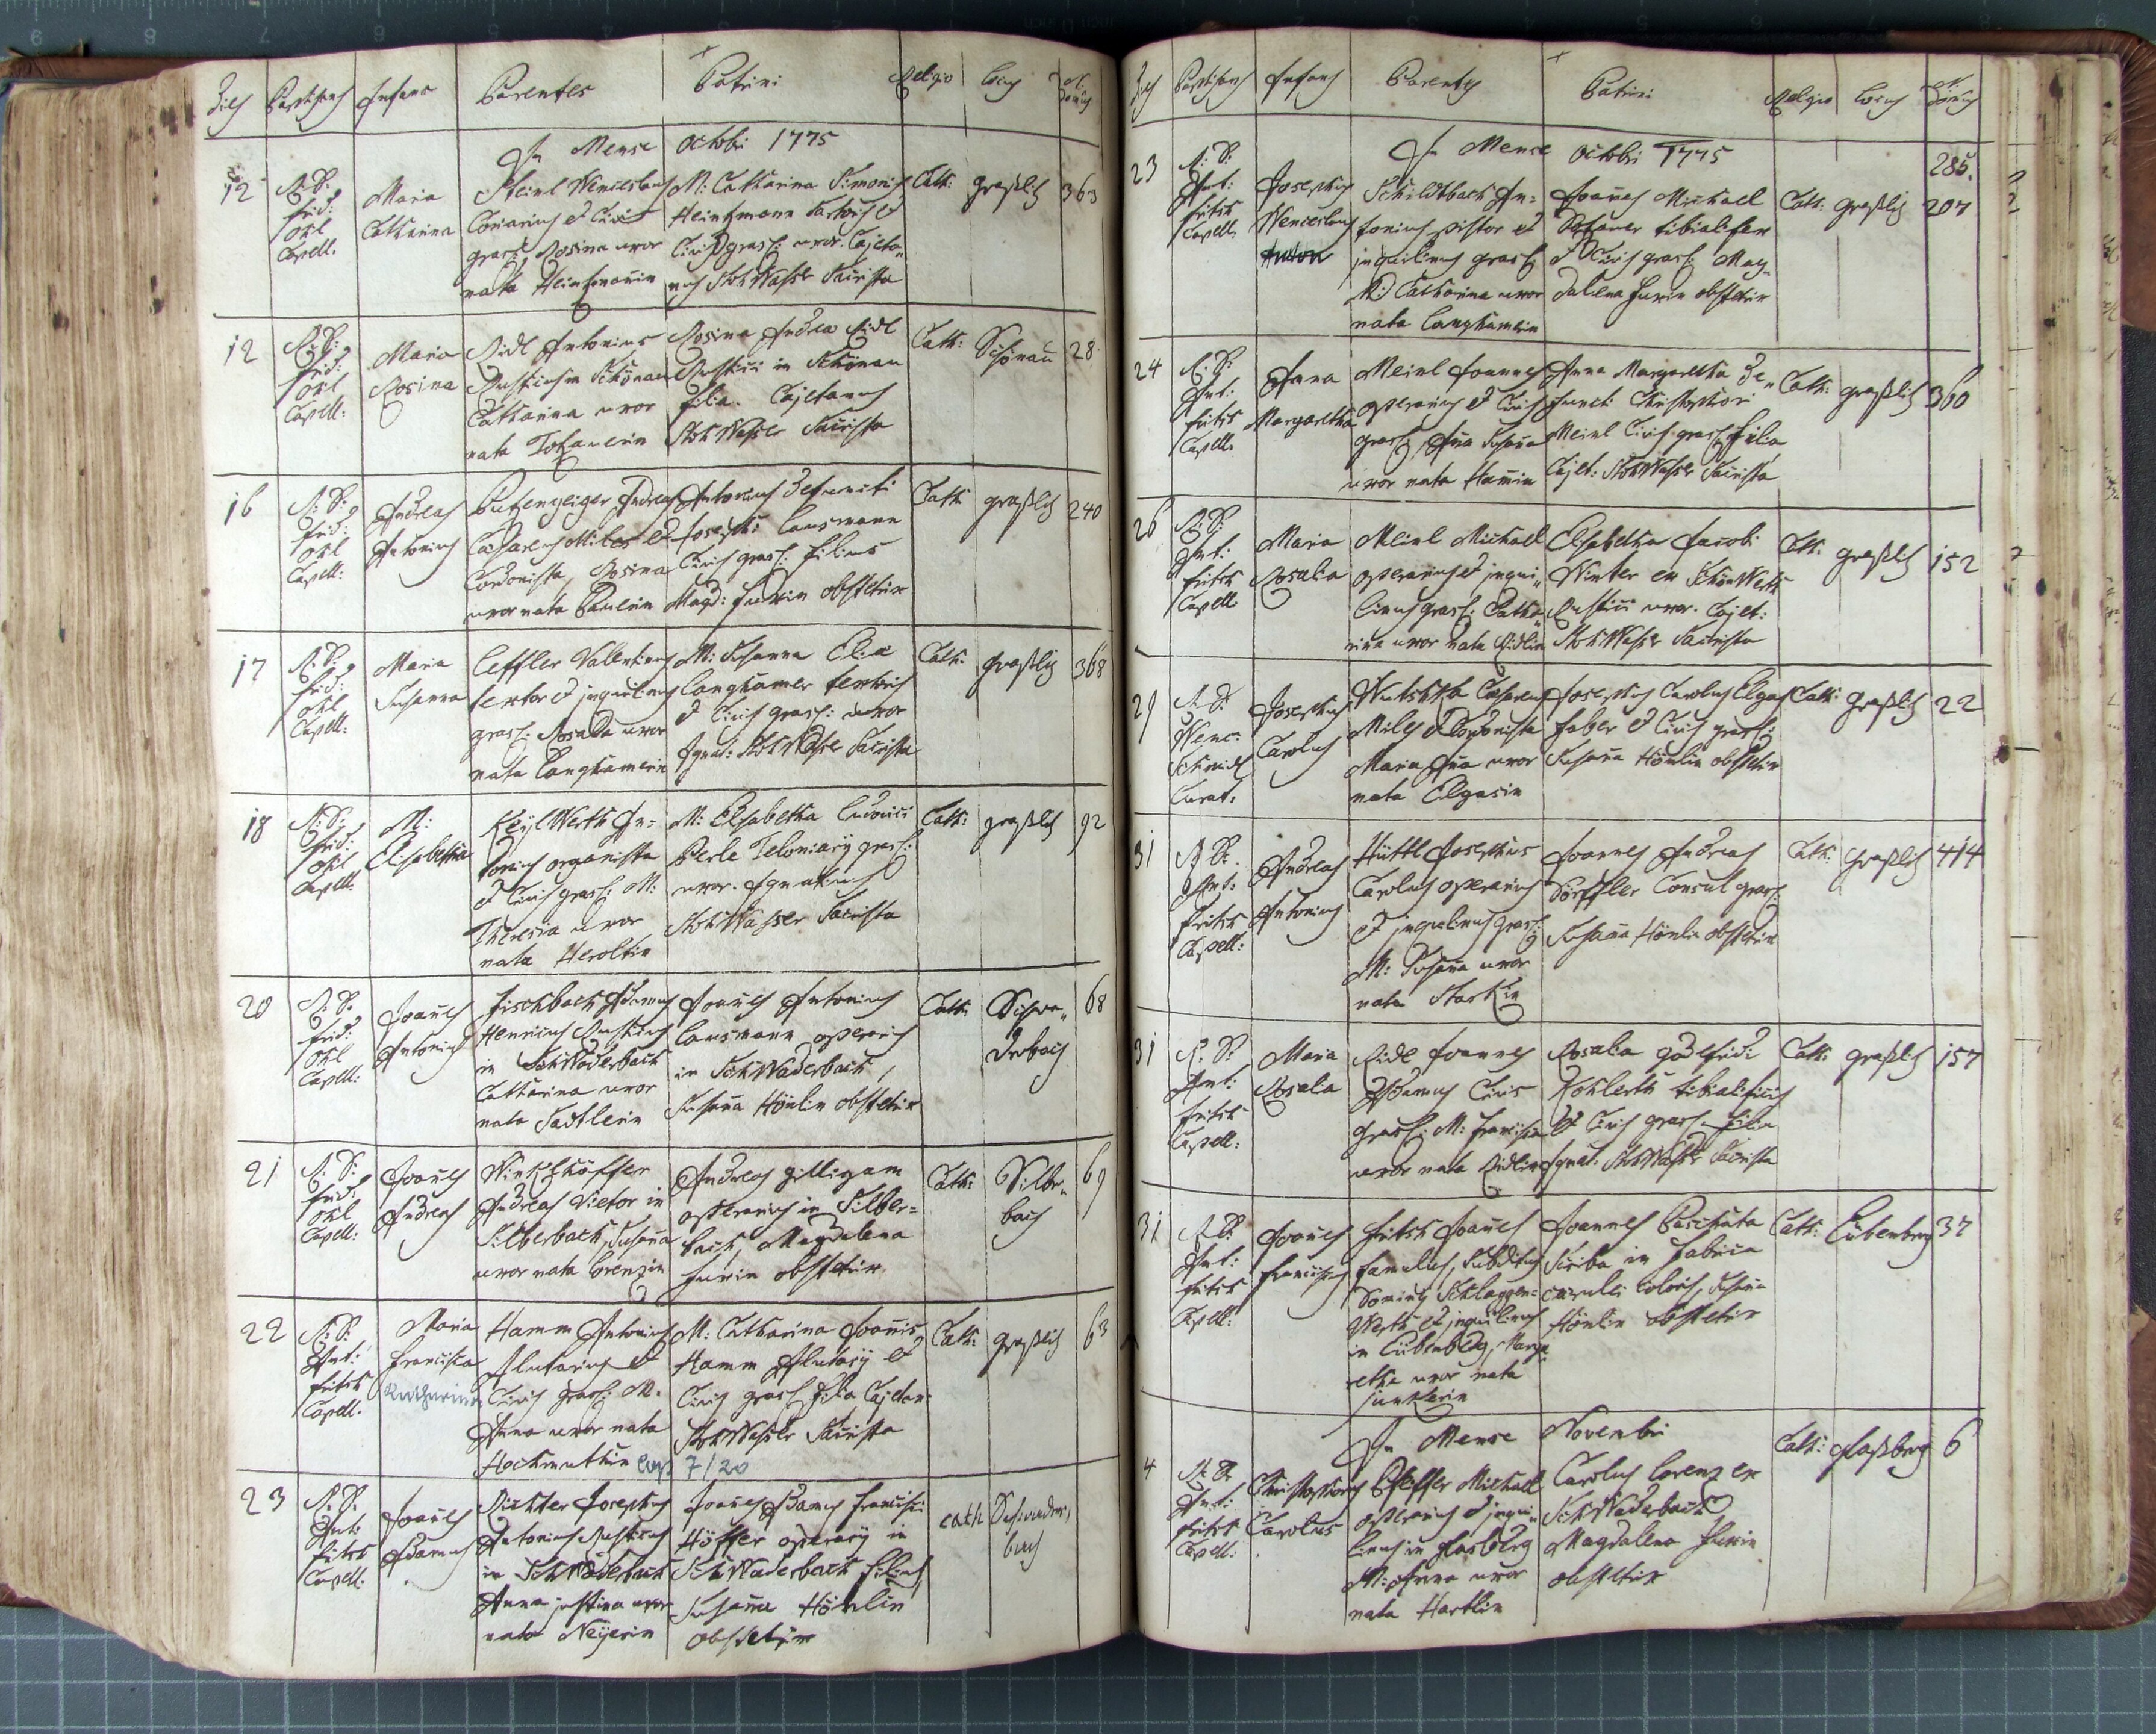 Dies Baptisans Infans Parentes Patrini Religio Locus N. domus
In Mense Octobri 1775
12 R: D: Frid: Ohl Capell. Maria Catharina
Steinl Wenceslaus
Coriarius et Civis
grasl: Rosina uxor
nata Heintzmanin
M: Catharina Simonis
Heintzmann Sartoris et
Civis grasl: uxor. Cajeta„
nus StokWasser Sacrista
Cath: graßlitz 363
12 R: D: Frid: Ohl Capell: Maria Rosina
Ridl Antonius
Rusticus in Schönau
Catharina uxor
nata
Rosina Andreae Ridl
Rustici in Schönau
filia. Cajetanus
StokWasser Sacrista
Cath: Schönau 28.
16 R: D: Frid: Ohl Capell: Andreas Antonius
Putzengeiger Andreas
Caesareus Miles et
Cordonista, Rosina
uxor nata Paulein
Antonius Defuncti
Josephi Lausmann
Civis grasl: filius
Magd: Fuxin obstetrix
Cath: graßlitz 240
17 R: D: Frid: Ohl Capell: Maria Susanna
Leffler Valentinus
textor et inquilinus
grasl: Rosalia uxor
nata Langhamerin
M: Susanna Eliae
Langhamer textoris
et Civis grasl: uxor
Ignat: StokWasser Sacrista
Cath: graßlitz 368
18 R: D: Frid: Ohl Capell: M: Elisabetha
KeylWerth An=
tonius organista
et Civis grasl: M:
Theresia uxor
nata Heroltin
M: Elisabetha Ludovici
Perle Teloniarij grasl:
uxor. Ignatius
StokWasser Sacrista
Cath: graßlitz 92
20 R: D: Frid: Ohl Capell: Joannes Antonius
Fischbach Adamus
Henricus Rusticus
in SchWaderbach
Catharina uxor
nata Sadtlerin
Joannes Antonius
Lausmann operarius
in SchWaderbach,
Susanna Hönlin obstetrix
Cath: Schwa„
derbach 68
21 R: D: Frid: Ohl Capell: Joannes Andreas
Winkelhöffer
Andreas Vietor in
Silberbach, Susanna
uxor nata Lorenzin
Andreas gilligam
operarius in Silber=
bach, Magdalena
Fuxin obstetrix
Cath: Silber„
bach 69
22 R: D: Ant: Fritsch Capell. Maria Francisca Katharina
Hamm Antonius
Alutarius et
Civis grasl: M.
Anna uxor nata
Hochmuthin cop 7/20
M: Catharina Joannis
Hamm Alutarij et
Civis grasl filia Cajetan:
StokWasser Sacrista
Cath: graßlitz 63
23 R: D: Ant: Fritsch Capell: Joannes Adamus
Richter Josephus
Antonius Rusticus
in SchWaderbach
Anna justina uxor
nata Neyerin
Joannes Adamus Francisci
Höffer operarij in
SchWaderbach filius
Susanna Hönlin
obstetrix
cath Schwader„
bach
Dies Baptisans Infans Parentes Patrini Religio Locus N. domus
In Mense Octobri 1775
23 R: D: Ant: Fritsch Capell. Josephus Wenceslaus Anton
Schildtbach An=
tonius pistor et
inquilinus grasl:
M: Catharina uxor
nata Langhamerin
Joannes Michael
tibialifex
et Civis grasl: Mag„
dalena Fuxin obstetrix
Cath: graßlitz 285. 207
24 R: D: Ant: Fritsch Capell. Anna Margaretha
Meinl Joannes
operarius et Civis
grasl: Anna Susanna
uxor nata Hamin
Anna Margaretha De„
functi Christophori
Meinl Civis grasl: filia
Cajet: StokWasser Sacrista
Cath: graßlitz 360
26 R: D: Ant: Fritsch Capell. Maria Rosalia
Meinl Michael
operarius et inqui„
linus grasl: Catha„
rina uxor nata Ridlin
Elisabetha Jacobi
Winter ex SchönWerth
Rustici uxor. Cajet:
StokWasser Sacrista
Cath: graßlitz 152
29 R: D: Wenc: Schmidl Curat: Josephus Carolus
Caesareus
Miles et Cordonista
Maria Anna uxor
nata Elgasin
Josephus Carolus Elgas
Faber et Civis grasl:
Susanna Hönlin obstetrix
Cath: graßlitz 22
31 R: D: Ant: Fritsch Capell: Andreas Antonius
Hüttl Josephus
Carolus operarius
et inquilinus grasl:
M: Susanna uxor
nata Starkin
Joannes Andreas
Dörffler Consul grasl:
Susanna Hönlin obstetrix
Cath: graßlitz 414
31 R: D: Ant: Fritsch Capell: Maria Rosalia
Ridl Joannes
Adamus Civis
grasl: M: Francisca
uxor nata Ridlin
Rosalia godefridi
Kohlerth tibialificis
et Civis grasl. filia
Ignat: StokWasser Sacrista
Cath: graßlitz 157
31 R: D: Ant: Fritsch Capell: Joannes Franciscus
Fritsch Joannes
famulus, subditus
Dominij Schlaggen=
Werth et inquilinus
in Eubenberg, Marga
retha uxor nata
junkerin
Joannes Paschata
Scriba in Fabrica
caerulei coloris, Susanna
Hönlin obstetrix
Cath: Eubenberg 37
In Mense Novembri
4 R: D: Ant: Fritsch Capell: Christophorus Carolus
Pfeiffer Michael
operarius et inqui„
linus in glasberg
M: Anna uxor
nata Hartlin
Carolus Lorenz ex
SchWaderbach
Magdalena Fuxin
obstetrix
Cath: glaßberg 6